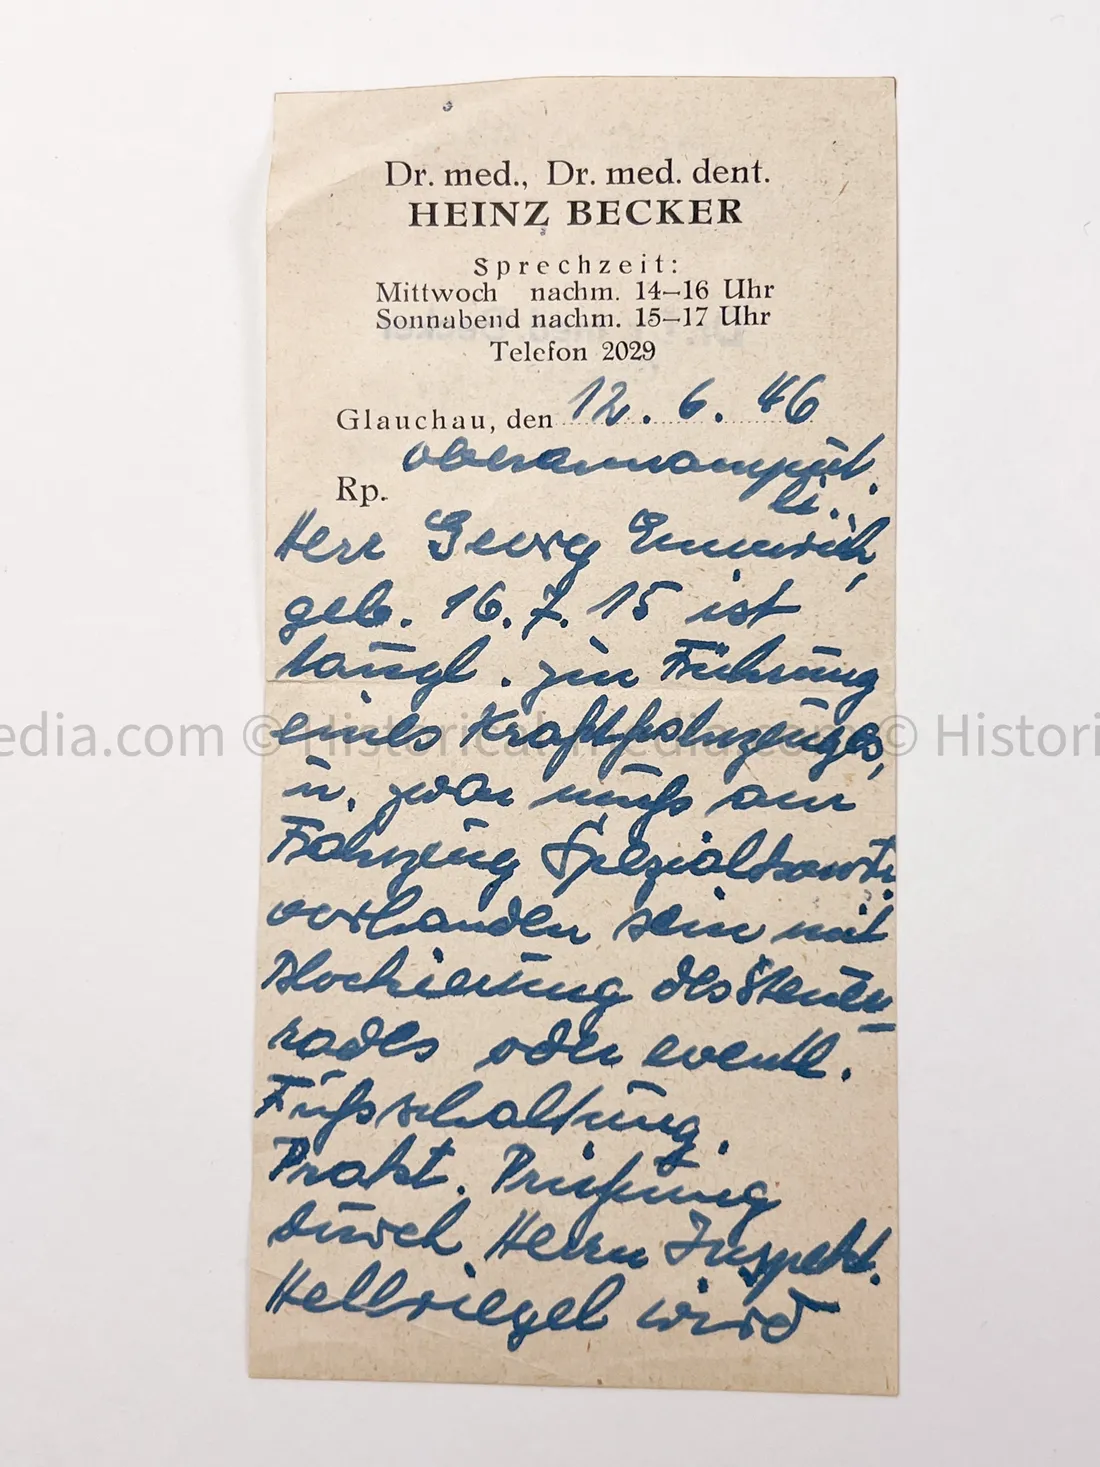 Dr. med., Dr. med. dent.
HEINZ BECKER
Sprechzeit:
Mittwoch nachm. 14–16 Uhr
Sonnabend nachm. 15–17 Uhr
Telefon 2029
Glauchau, den 12. 6. 46
oberarmamput.
Rp. li.
Herr Georg Emmrich,
geb. 16. 7. 15 ist
taugl. zur Führung
eines Kraftfahrzeuges,
edia.com © Historical-media.com © Histori
u. zwar muß am
Fahrzeug
vorhanden sein mit
Blockierung des Steuer-
rades oder eventl.
Fußschaltung.
Prakt. Prüfung
durch Herrn Inspekt.
Hellriegel wird